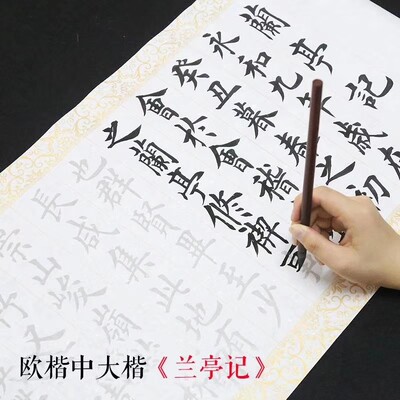 蘭亭記
永和九年歲在
癸丑暮春之初
會於會稽
之蘭亭修禊事
也群賢畢至少
長咸集此地
崇山峻嶺
竹又
欧楷中大楷《兰亭记》